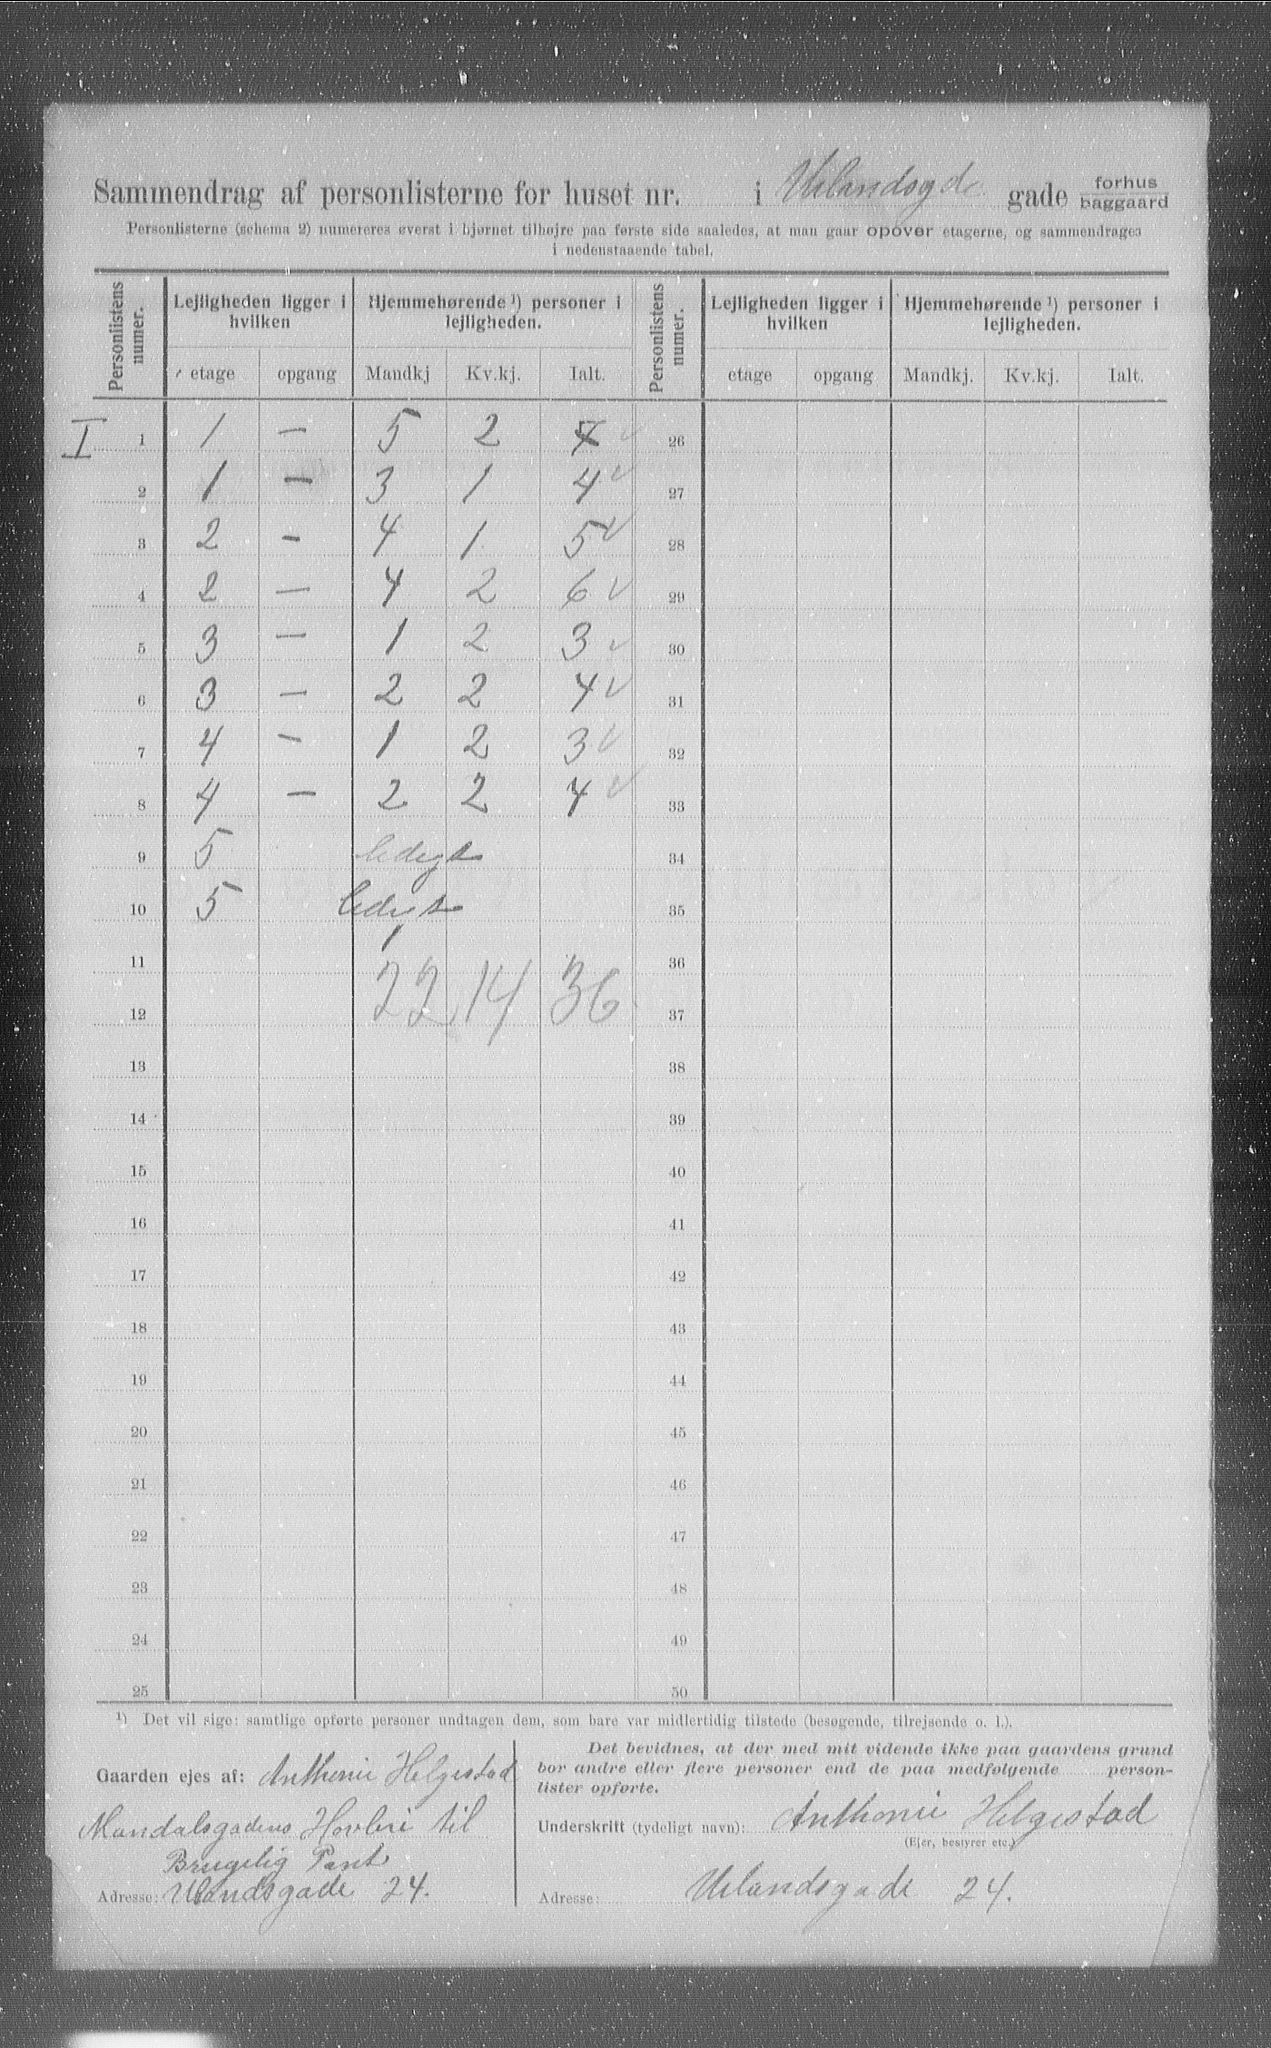 Sammendrag af personlisterne for huset nr. i Uelandsgd. gade forhus
baggaard
Personlisterne (schema 2) numereres øverst i hjørnet tilhøjre paa første side saaledes, at man gaar opover etagerne, og sammendrages
i nedenstaaende tabel.
Personlistens numer. Lejligheden ligger i hvilken Hjemmehørende ¹) personer i lejligheden. Personlistens numer. Lejligheden ligger i hvilken Hjemmehørende ¹) personer i lejligheden.
etage opgang Mandkj Kv.kj. Ialt. etage opgang Mandkj. Kv.kj. Ialt.
I 1 1 — 5 2 7 ✓ 26
2 1 — 3 1 4 ✓ 27
3 2 — 4 1 5 ✓ 28
4 2 — 4 2 6 ✓ 29
5 3 — 1 2 3 ✓ 30
6 3 — 2 2 4 ✓ 31
7 4 — 1 2 3 ✓ 32
8 4 — 2 2 4 ✓ 33
9 5 ledigt 34
10 5 ledigt 35
11 36
22 14 36
12 37
13 38
14 39
15 40
16 41
17 42
18 43
19 44
20 45
21 46
22 47
23 48
24 49
25 50
¹) Det vil sige: samtlige opførte personer undtagen dem, som bare var midlertidig tilstede (besøgende, tilrejsende o. l.).
Gaarden ejes af: Anthoni Helgestad
Mandalsgadens Hovleri til
Brugelig Pant
Adresse: Uelandsgade 24.
Det bevidnes, at der med mit vidende ikke paa gaardens grund
bor andre eller flere personer end de paa medfølgende person-
lister opførte.
Underskrift (tydeligt navn): Anthoni Helgestad
(Ejer, bestyrer etc.)
Adresse: Uelandsgade 24.